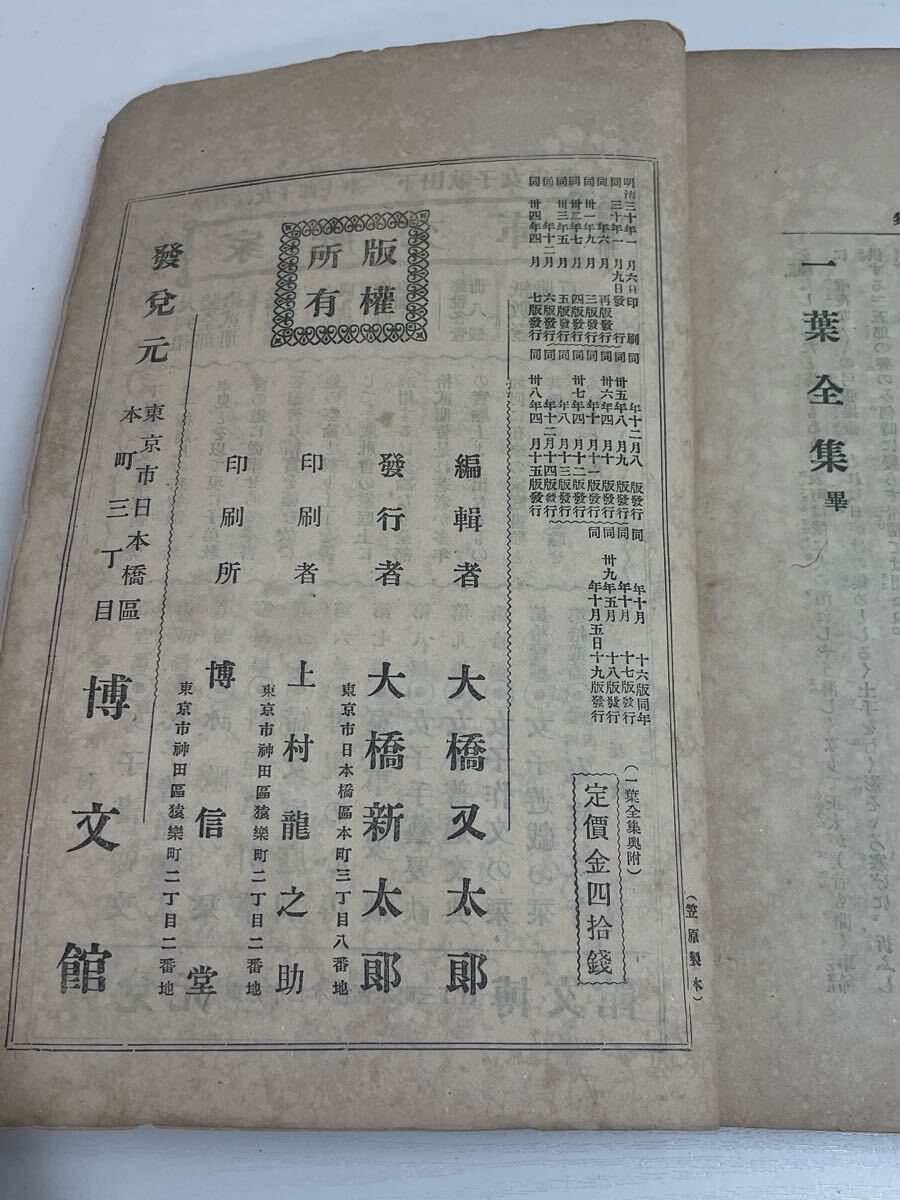 一葉全集 畢
(笠原製本)
(一葉全集奧附)
定價金四拾錢
明治三十年一月六日印刷
同三十年一月九日發行
同年六月再版發行
同卅一年九月三版發行
同卅二年七月四版發行
同卅三年五月五版發行
同年十二月六版發行
同卅四年四月七版發行
同年十二月八版發行
同卅五年八月九版發行
同卅六年四月十版發行
同年十月十一版發行
同卅七年四月十二版發行
同年八月十三版發行
同年十二月十四版發行
同卅八年四月十五版發行
同年十月十六版同年
同年十月十七版發行
同卅九年五月十八版發行
同年十月五日十九版發行
版權所有
編輯者 大橋又太郎
發行者 大橋新太郎
東京市日本橋區本町三丁目八番地
印刷者 上村龍之助
東京市神田區猿樂町二丁目二番地
印刷所 博信堂
東京市神田區猿樂町二丁目二番地
發兌元 東京市日本橋區本町三丁目 博文館